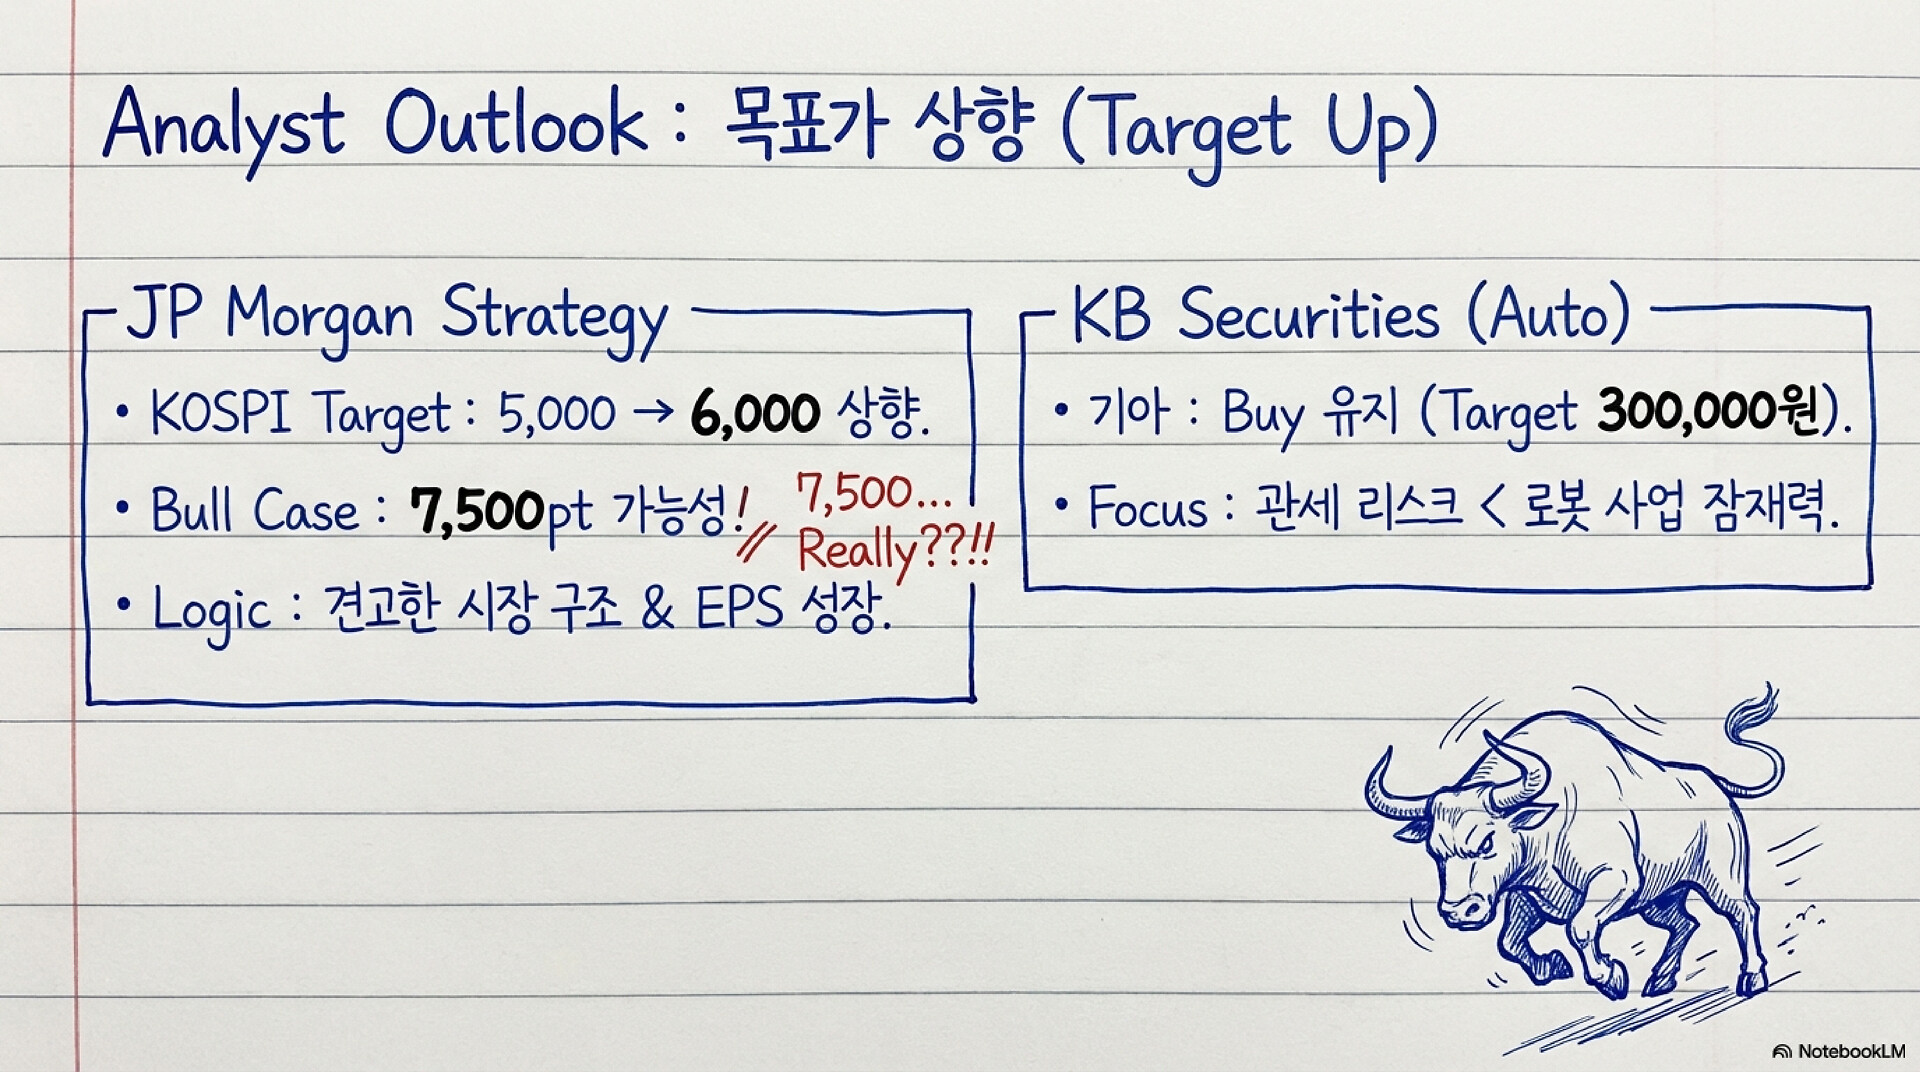 Analyst Outlook : 목표가 상향 (Target Up)
JP Morgan Strategy
• KOSPI Target : 5,000 → 6,000 상향.
• Bull Case : 7,500pt 가능성!
7,500...
Really??!!
• Logic : 견고한 시장 구조 & EPS 성장.
KB Securities (Auto)
• 기아 : Buy 유지 (Target 300,000원).
• Focus : 관세 리스크 < 로봇 사업 잠재력.
NotebookLM